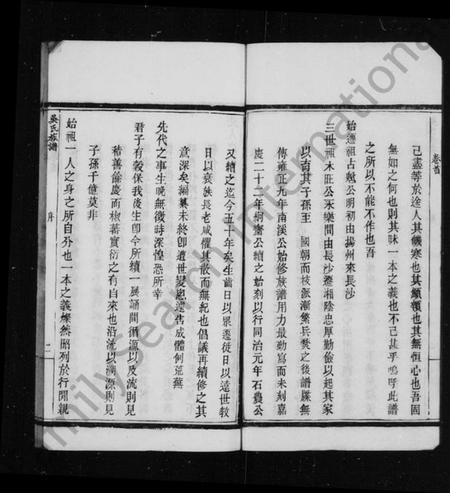 卷首
己盡等於途人其饑寒也其顛顇也其無恒心也吾固
無如之何也則其昧一本之義也不已甚乎嗚呼此譜
之所以不能不作也吾
始遷祖古魁公明初由揚州來長沙
三世祖木旺公永樂間由長沙遷湘陰忠厚勤儉以起其家
以各其子孫至 國朝而枝派漸繁兵燹之後譜牒無
傳雍正九年南溪公始修族譜用力最勤寫而未刻嘉
慶二十二年炯齋公續之始刻以行同治元年石農公
又續之迄今五十年矣生齒日以眾遷徙日以遠世教
日以衰族長老咸懼其散而無紀也倡議再續修之其
意深矣編纂未終卽遭世變恩遽告成體例荒蕪
先代之事生晚無徵時深惶恐所幸
君子有穀保我後生卽今所續一展誦間循流以及流則見
積善餘慶而椒蕃實衍之有自來也沿流以溯源則見
子孫千億莫非
始祖一人之身之所自分也一本之義燦然昭列於行間親
吳氏族譜
序
二
Family Search International